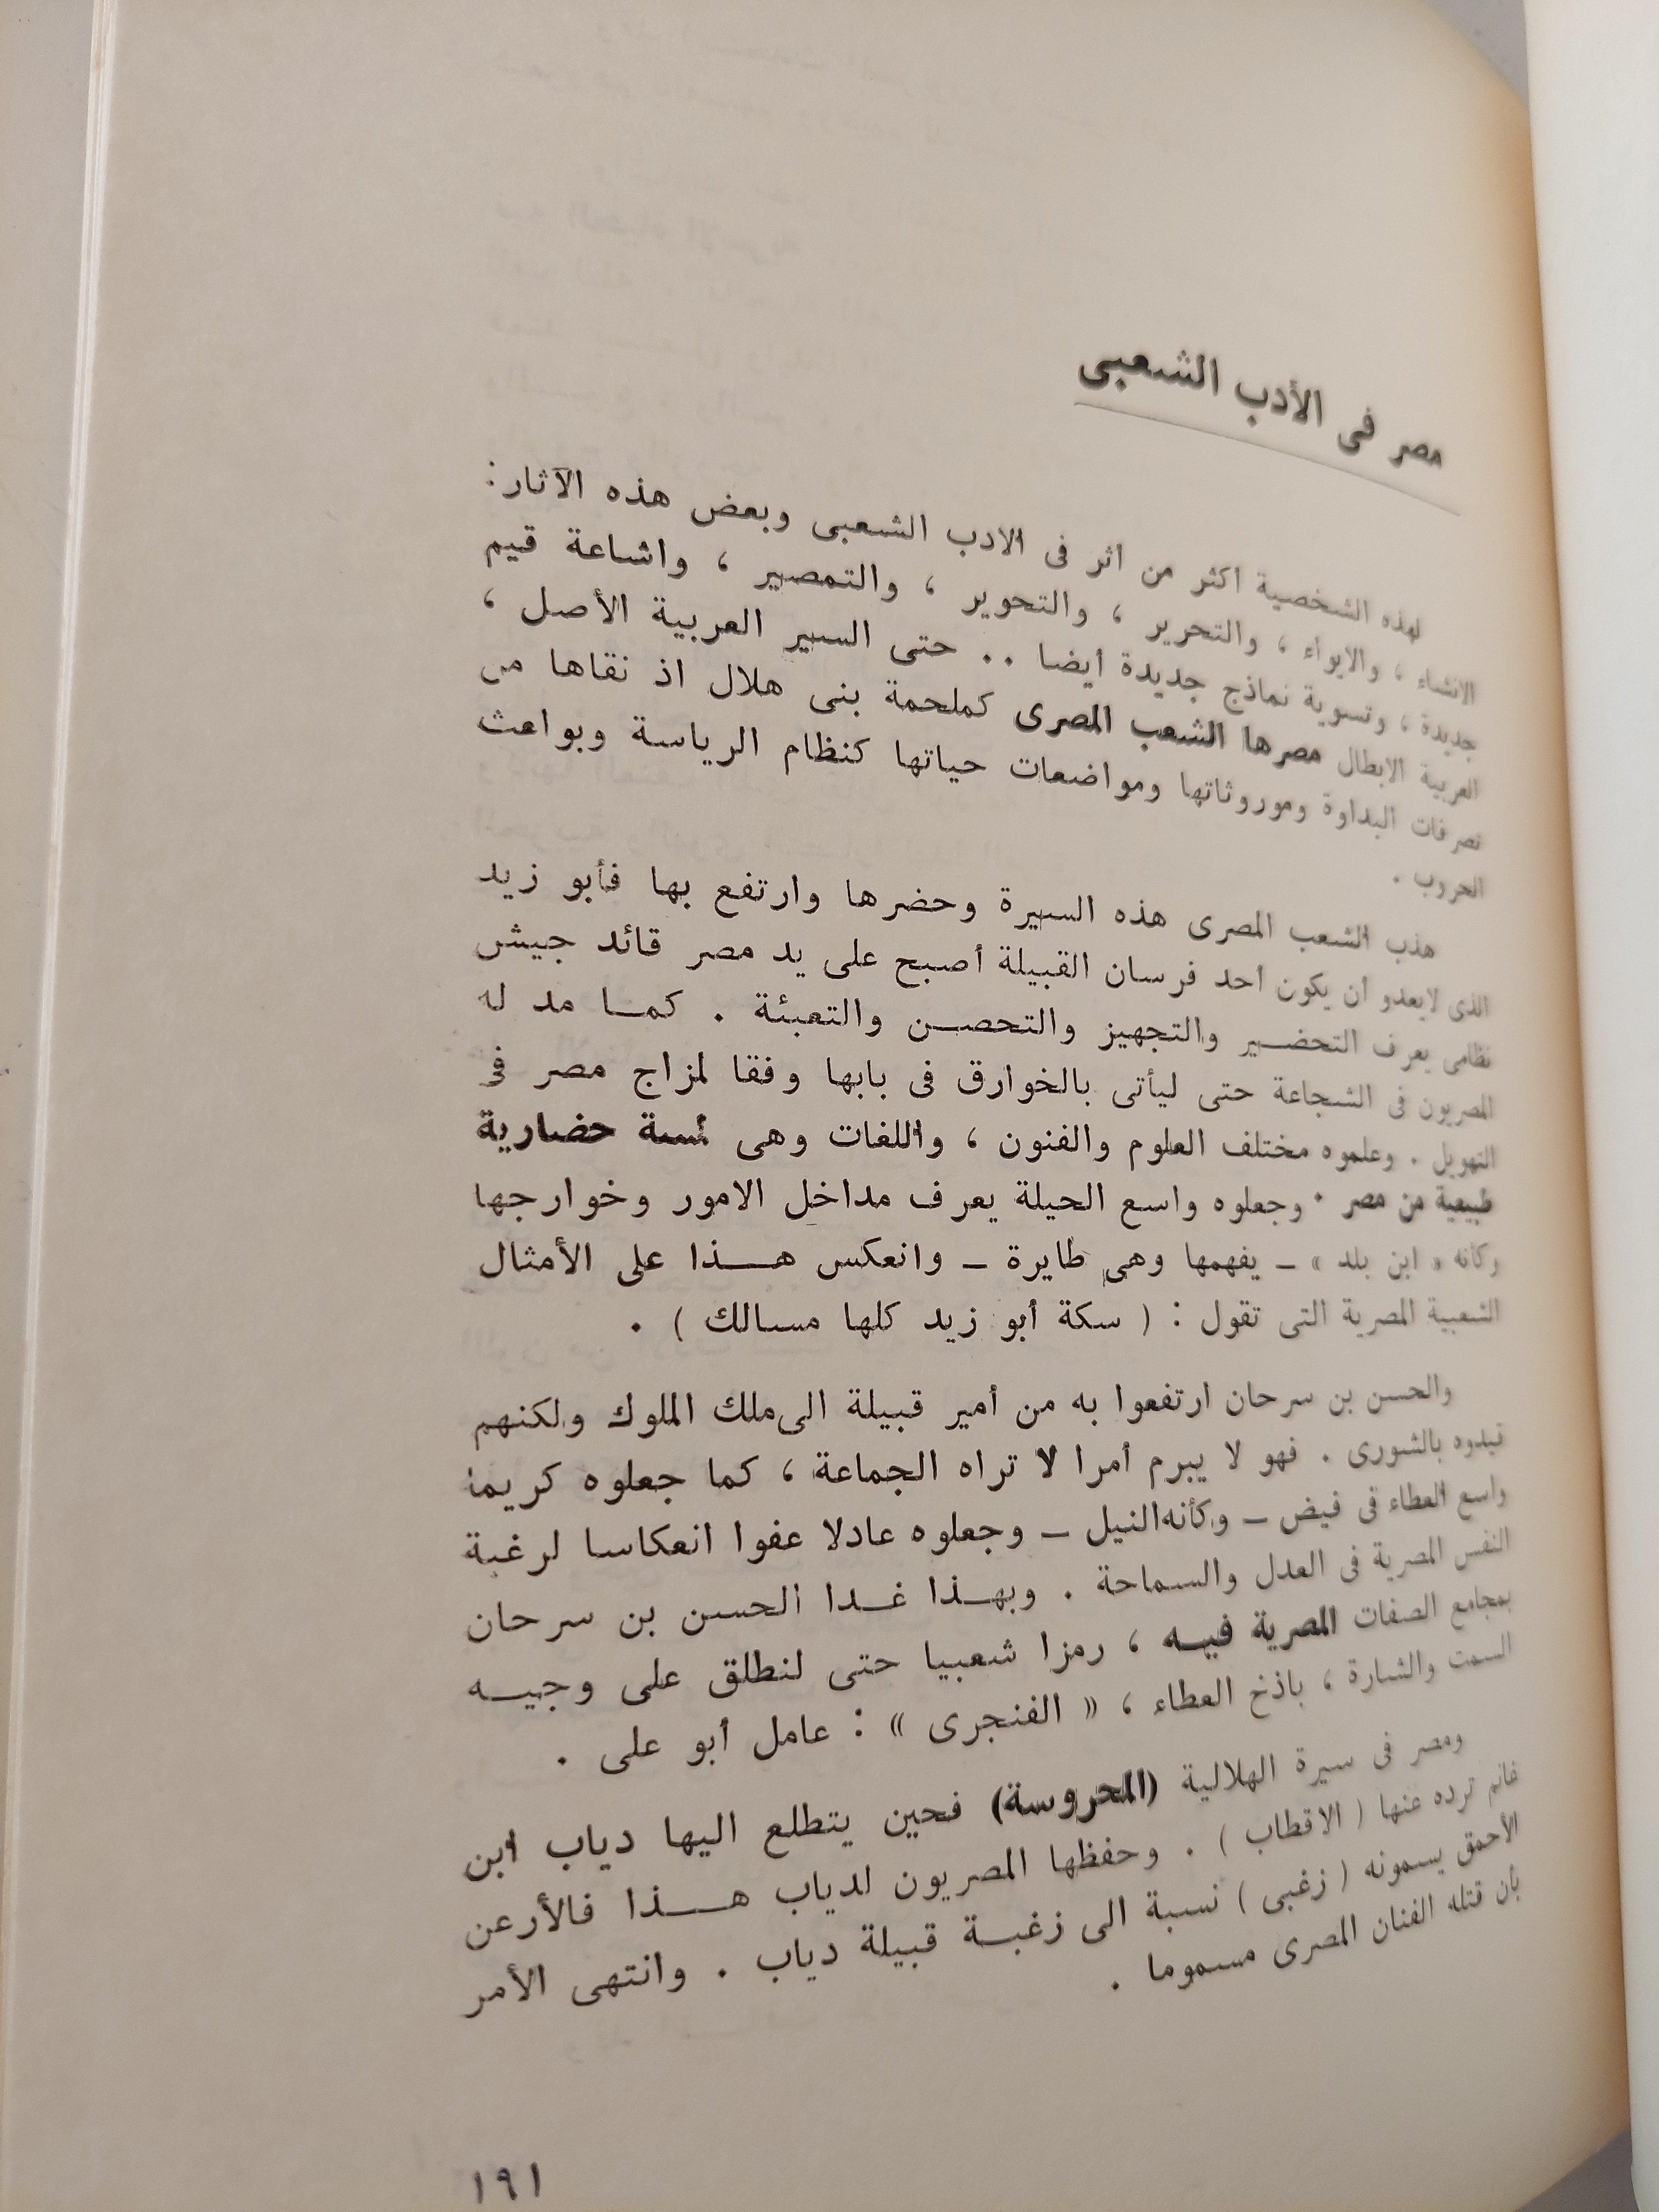 مصر فى الأدب الشعبى
لهذه الشخصية أكثر من أثر فى الادب الشعبى وبعض هذه الآثار:
الانشاء ، والايواء ، والتحرير ، والتحوير ، والتمصير ، واشاعة قيم
جديدة ، وتسوية نماذج جديدة أيضا .. حتى السير العربية الأصل ،
العربية الابطال مصرها الشعب المصرى كملحمة بنى هلال اذ نقاها من
تصرفات البداوة وموروثاتها ومواضعات حياتها كنظام الرياسة وبواعث
الحروب .
هذب الشعب المصرى هذه السيرة وحضرها وارتفع بها فأبو زيد
الذى لايعدو أن يكون أحد فرسان القبيلة أصبح على يد مصر قائد جيش
نظامى يعرف التحضير والتجهيز والتحصن والتعبئة . كما مد له
المصريون فى الشجاعة حتى ليأتى بالخوارق فى بابها وفقا لمزاج مصر فى
التهويل . وعلموه مختلف العلوم والفنون ، واللغات وهى لمسة حضارية
طبيعية من مصر . وجعلوه واسع الحيلة يعرف مداخل الامور وخوارجها
وكانه « ابن بلد » ـ يفهمها وهى طايرة ـ وانعكس هذا على الأمثال
الشعبية المصرية التى تقول : ( سكة أبو زيد كلها مسالك ) .
والحسن بن سرحان ارتفعوا به من أمير قبيلة الى ملك الملوك ولكنهم
قيدوه بالشورى . فهو لا يبرم أمرا لا تراه الجماعة ، كما جعلوه كريما
واسع العطاء فى فيض ـ وكأنه النيل ـ وجعلوه عادلا عفوا انعكاسا لرغبة
النفس المصرية فى العدل والسماحة . وبهذا غدا الحسن بن سرحان
بمجامع الصفات المصرية فيه ، رمزا شعبيا حتى لنطلق على وجيه
السمت والشارة ، باذخ العطاء ، « الفنجرى » : عامل أبو على .
ومصر فى سيرة الهلالية (المحروسة) فحين يتطلع اليها دياب ابن
غانم ترده عنها ( الاقطاب ) . وحفظها المصريون لدياب هذا فالأرعن
الأحمق يسمونه ( زغبى ) نسبة الى زغبة قبيلة دياب . وانتهى الأمر
بأن قتله الفنان المصرى مسموما .
١٩١